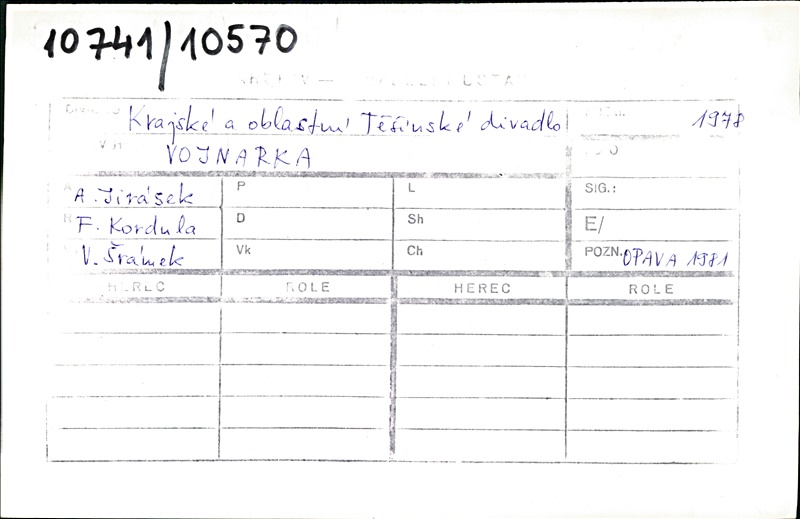 10741/10570
Krajské a oblastní Těšínské divadlo 1978
VOJNARKA
A. Jirásek P L SIG.:
F. Kordula D Sh E/
V. Šrámek Vk Ch POZN. OPAVA 1981
HEREC ROLE HEREC ROLE